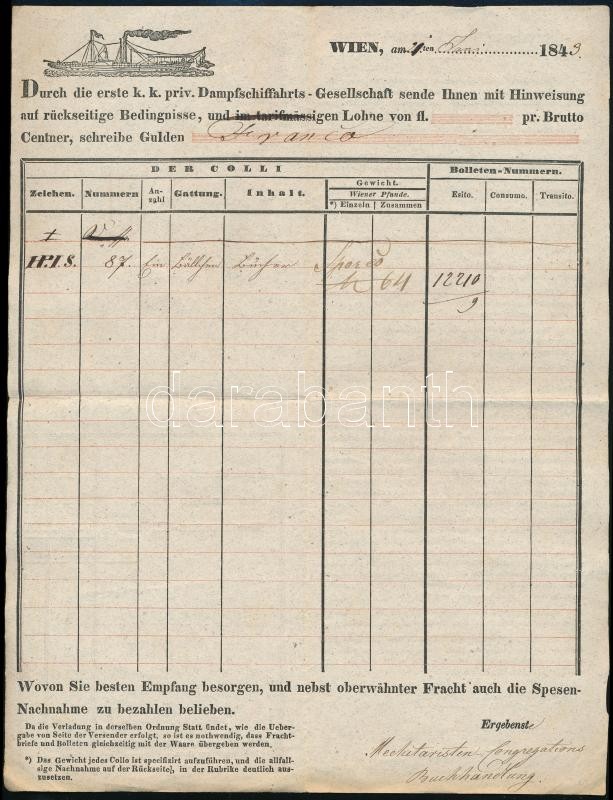 WIEN, am ten 1843
Durch die erste k. k. priv. Dampfschiffahrts-Gesellschaft sende Ihnen mit Hinweisung
auf rückseitige Bedingnisse, und im tarifmässigen Lohne von fl. pr. Brutto
Centner, schreibe Gulden Franco
DER COLLI
Bolleten-Nummern.
Zeichen. Nummern An-zahl Gattung. Inhalt. Gewicht. Esito. Consumo. Transito.
Wiener Pfunde.
*) Einzeln Zusammen
H.P.I.S. 87. Ein Bällchen Bücher Sporco 64 12210
9
darabanth
Wovon Sie besten Empfang besorgen, und nebst oberwähnter Fracht auch die Spesen-
Nachnahme zu bezahlen belieben.
Da die Verladung in derselben Ordnung Statt findet, wie die Ueber-
gabe von Seite der Versender erfolgt, so ist es nothwendig, dass Fracht-
briefe und Bolleten gleichzeitig mit der Waare übergeben werden.
*) Das Gewicht jedes Collo ist spezifirt aufzuführen, und die allfall-
sige Nachnahme auf der Rückseite, in der Rubrike deutlich aus-
zusetzen.
Ergebenste
Mechitaristen Congregations
Buchhandlung.